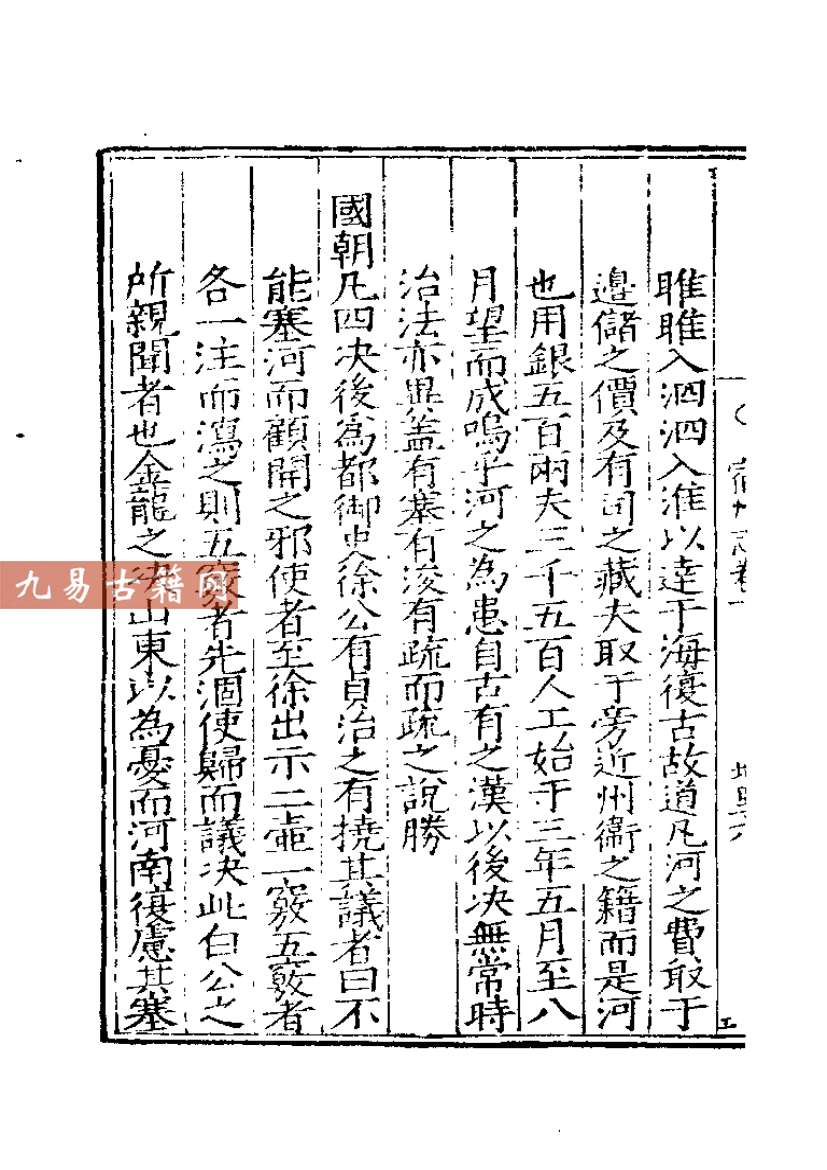 睢睢入泗泗入淮以達于海復古故道凡河之費取于
邊儲之價及有司之藏夫取于旁近州衞之籍而是河
也用銀五百兩夫三千五百人工始于三年五月至八
月望而成嗚乎河之為患自古有之漢以後决無常時
治法亦異盖有塞有浚有疏而疏之說勝
國朝凡四决後爲都御史徐公有貞治之有撓其議者曰不
能塞河而顧開之邪使者至徐出示二壺一竅五竅者
各一注而瀉之則五竅者先涸使歸而議决此白公之
所親聞者也金龍之决山東以為憂而河南復慮其塞
宿州志卷一
九易古籍网